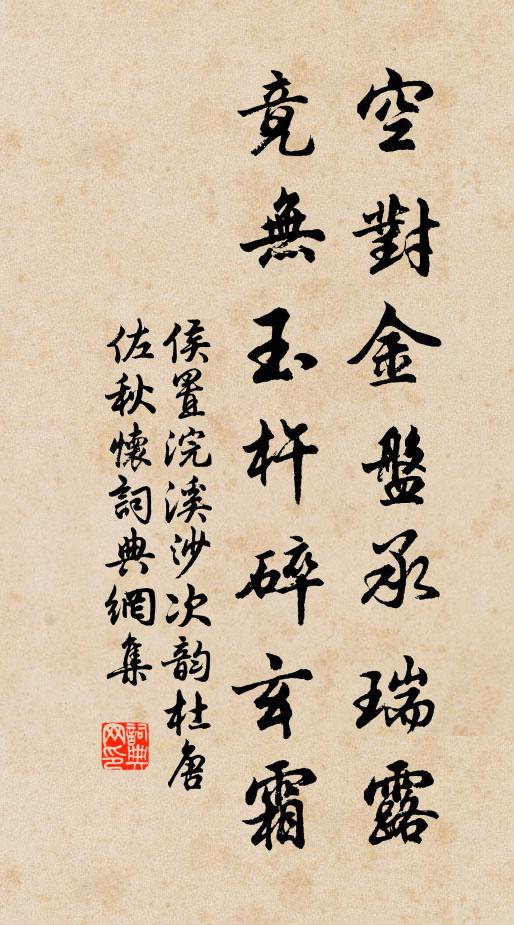 空對金盤承瑞露
竟無玉杵碎玄霜
侯置浣溪沙次韵杜唐
佐秋懷詞典網集
詞典
网印